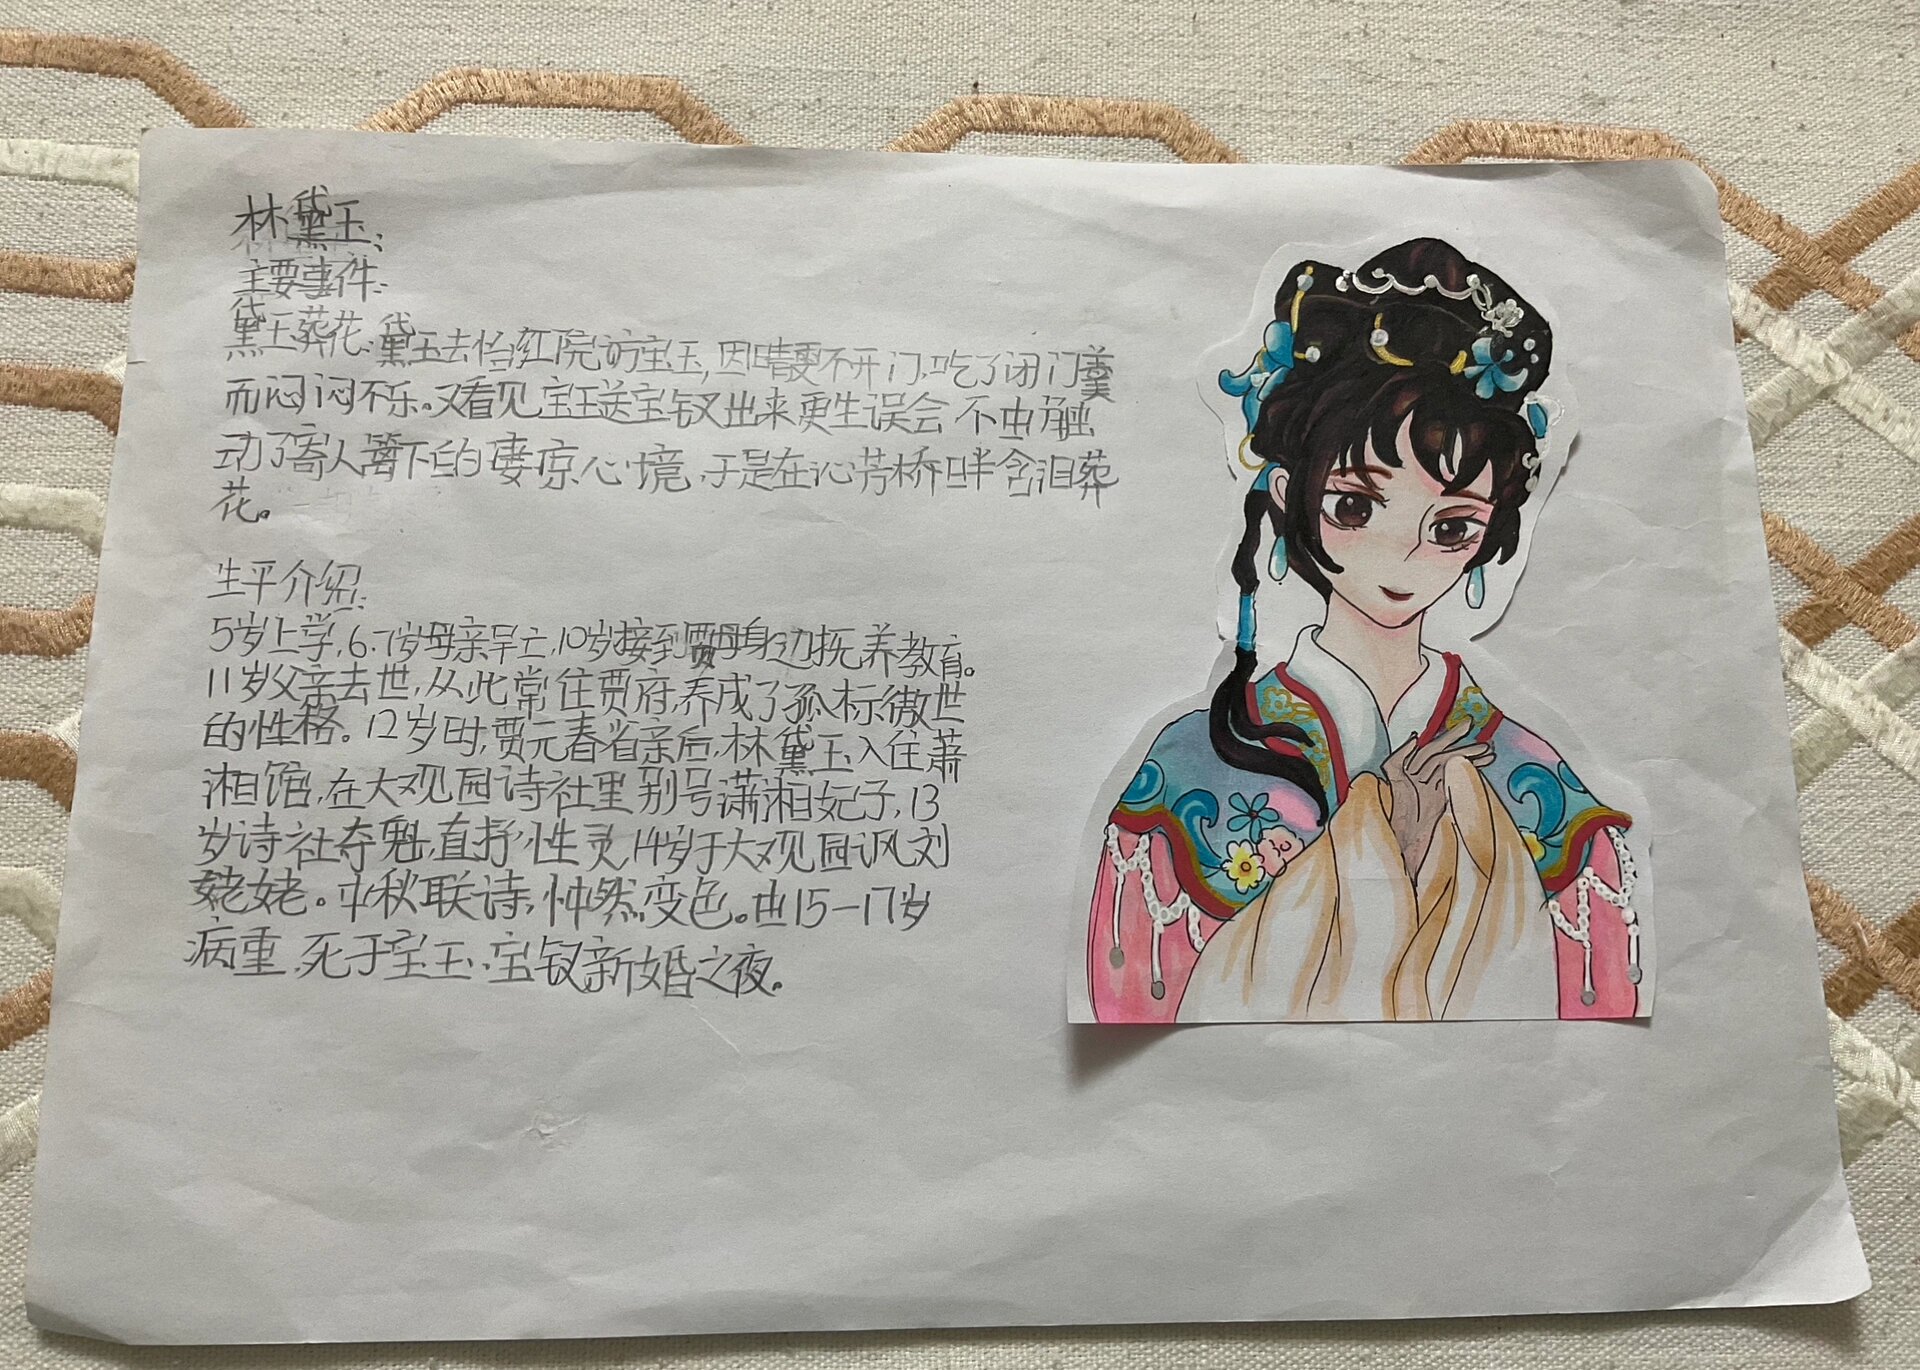 林黛玉:
主要事件:
黛玉葬花:黛玉去怡红院访宝玉,因晴雯不开门,吃了闭门羹
而闷闷不乐。又看见宝玉送宝钗出来更生误会 不由触
动了寄人篱下的凄凉心境,于是在沁芳桥畔含泪葬
花。
生平介绍:
5岁上学,6.7岁母亲早亡,10岁接到贾母身边抚养教育。
11岁父亲去世,从此常住贾府,养成了孤标傲世
的性格。12岁时,贾元春省亲后,林黛玉入住萧
湘馆,在大观园诗社里别号潇湘妃子,13
岁诗社夺魁,直抒性灵,14岁于大观园讽刘
姥姥。中秋联诗,忡然变色。由15—17岁
病重,死于宝玉、宝钗新婚之夜。